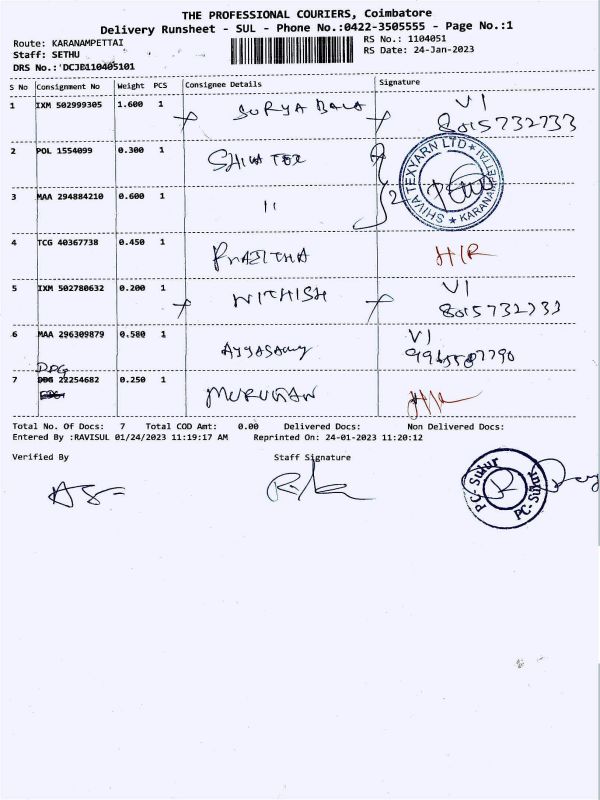 THE PROFESSIONAL COURIERS, Coimbatore
Delivery Runsheet - SUL - Phone No.:0422-3505555 - Page No.:1
Route: KARANAMPETTAI
RS No.: 1104051
Staff: SETHU
RS Date: 24-Jan-2023
DRS No.:'DCJE110405101
S No Consignment No Weight PCS Consignee Details Signature
1 IXM 502999305 1.600 1 SURYA BALA VI
8015732733
2 POL 1554099 0.300 1 SHIVA TEX
SHIVA TEXYARN LTD ★ KARANAMPETTAI ★
3 MAA 294884210 0.600 1 11 2
4 TCG 40367738 0.450 1 PRAJITHA H/R
5 IXM 502780632 0.200 1 NITHISH VI
8015732733
6 MAA 296309879 0.580 1 Ayyasamy VI
DPG
7 22254682 0.250 1 MURUGAN H/R
Total No. Of Docs: 7 Total COD Amt: 0.00 Delivered Docs: Non Delivered Docs:
Entered By :RAVISUL 01/24/2023 11:19:17 AM Reprinted On: 24-01-2023 11:20:12
Verified By Staff Signature
PC-Sulur PC-Sulur